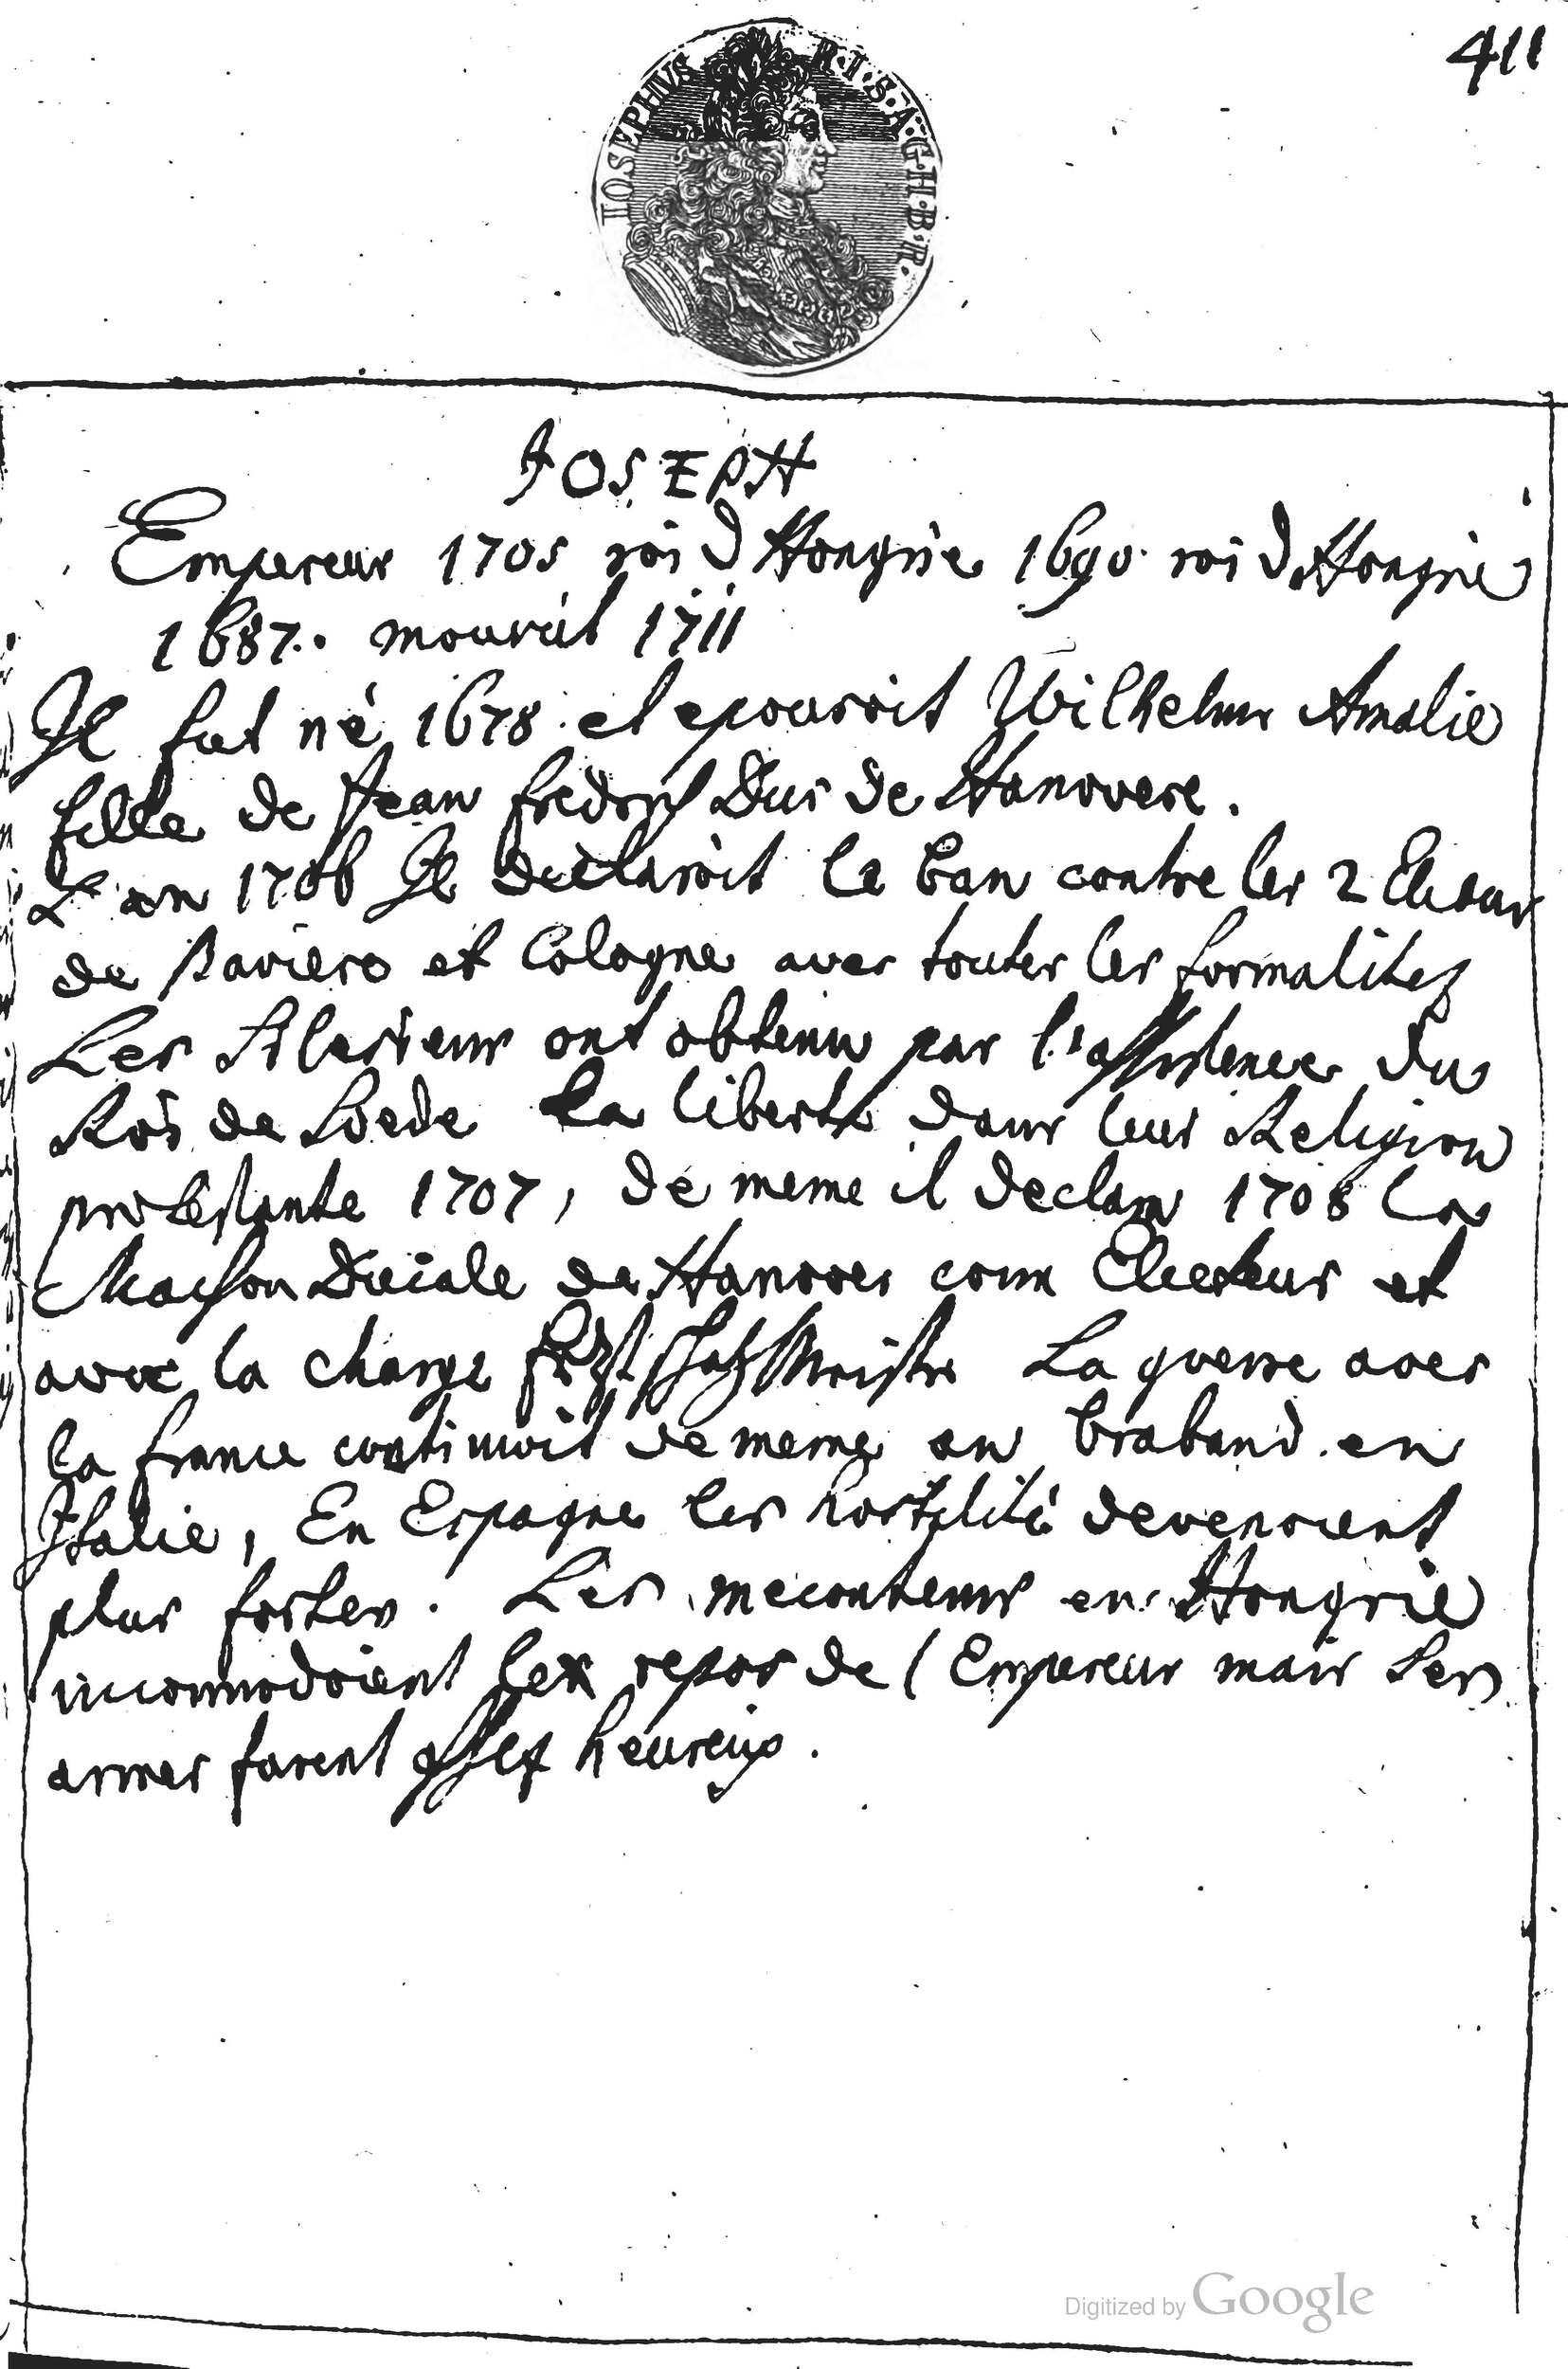 411
IOSEPHVS R·I·S·A·G·H·B·R·
JOSEPH
Empereur 1705 roi d Hongrie 1690 roi d Hongrie
1687. mourut 1711
Il fut né 1678 et epousoit Wilhelm Amalie
fille de Jean Fredrich Duc de Hanovere.
L'an 1706 Il declaroit le ban contre les 2
de Baviere et Cologne avec toutes les formalitez
Les Silesiens ont obtenu par l'assistence du
Roi de Svede la liberte dans leur Religion
protestante 1707, de meme il declara 1708 la
Mayson Duciale de Hanover com Electeur et
avec la charge La guerre avec
la france continuoit de meme an braband en
Italie, En Espagne les hostilité devenoient
plus fortes. Les mecontens en Hongrie
incommodoient les repos de l Empereur mais Ses
armes furent assez heureux.
Digitized by Google